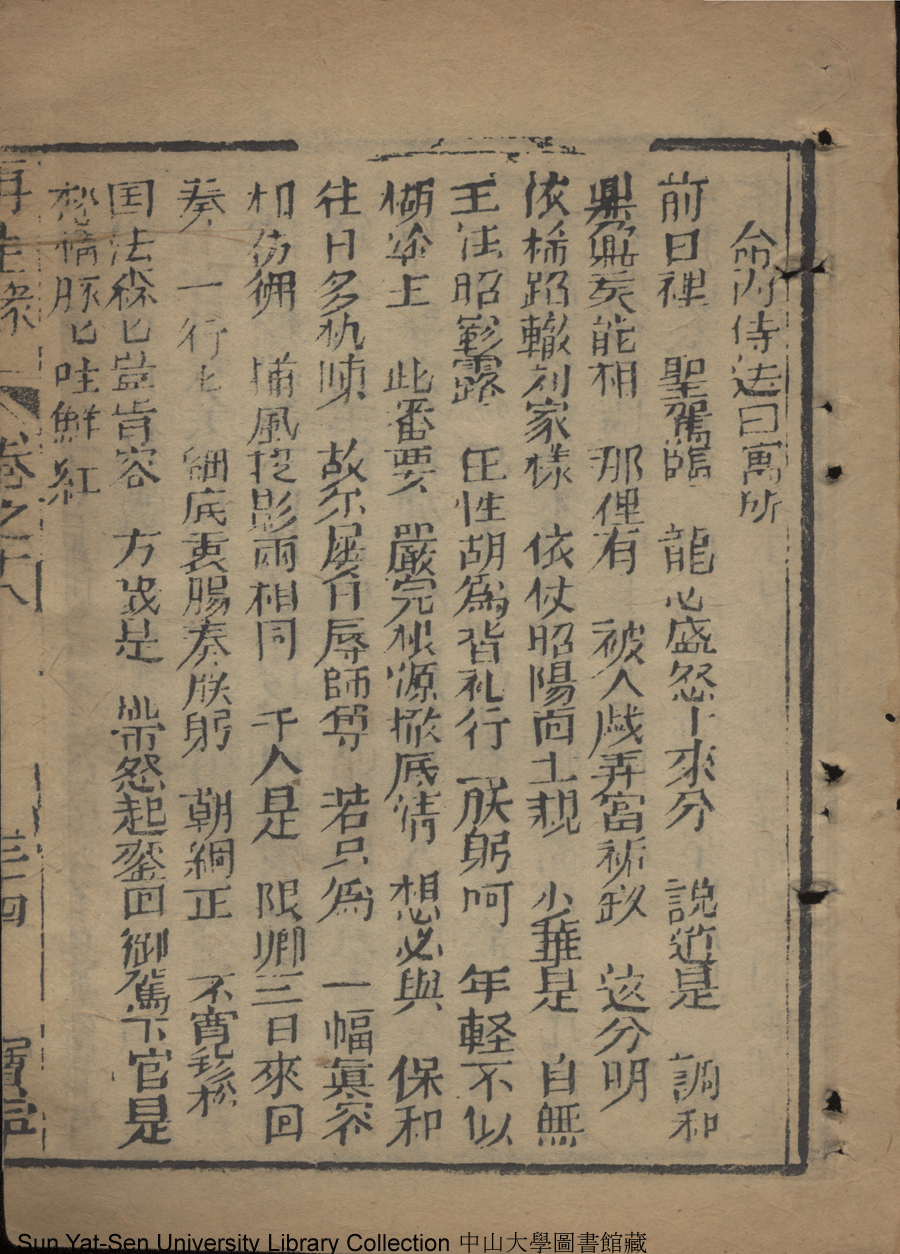 命内侍送回寓所
前日裡 聖駕臨 龍心盛怒十來分 說道是 調和
鼎鼐矣能相 那俚有 被人戯弄富 這分明
依稀蹈轍刘家樣 依仗昭陽面上親 少華是 自無
王法昭彰露 任性胡爲背礼行 朕躬呵 年軽不似
糊塗主 此番要 嚴究根源撤底情 想必與 保和
往日多仇 故尔屡育辱師尊 若只爲 一幅眞容
相彷彿 捕風捉影兩相同 千人是 限卿三日來回
奏 一行 細底衷腸奏朕躬 朝綱正 不寛
国法森匕豈肯容 方成是 帶怒起鑾回御駕下官是
豚匕吐鮮紅
再生緣 卷之十八 三十四 寶寧
Sun Yat-Sen University Library Collection 中山大學圖書館藏